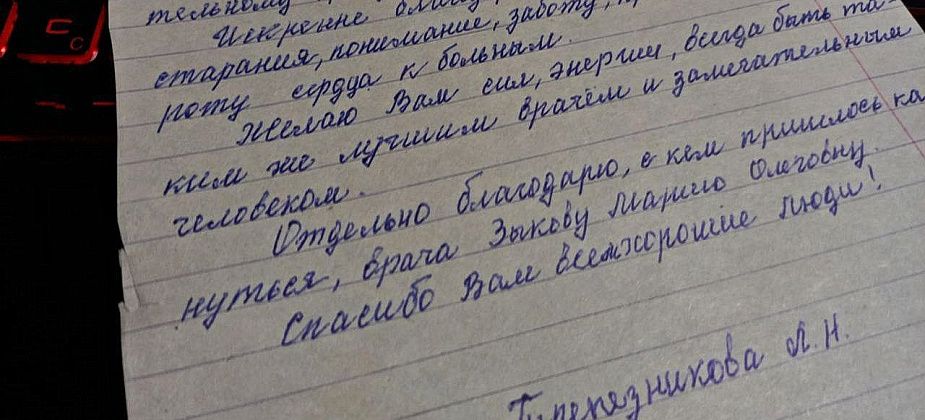 С
C
тельному
Искренне благо
старания, понимание, заботу,
роту сердца к больным.
Желаю Вам сил, энергии, всегда быть та-
ким же лучшим врачём и замечательным
человеком.
Отдельно благодарю, с кем пришлось ка
нуться, врача Зыкову Марию Олеговну.
Спасибо Вам всем хорошие люди!
Л.Н.